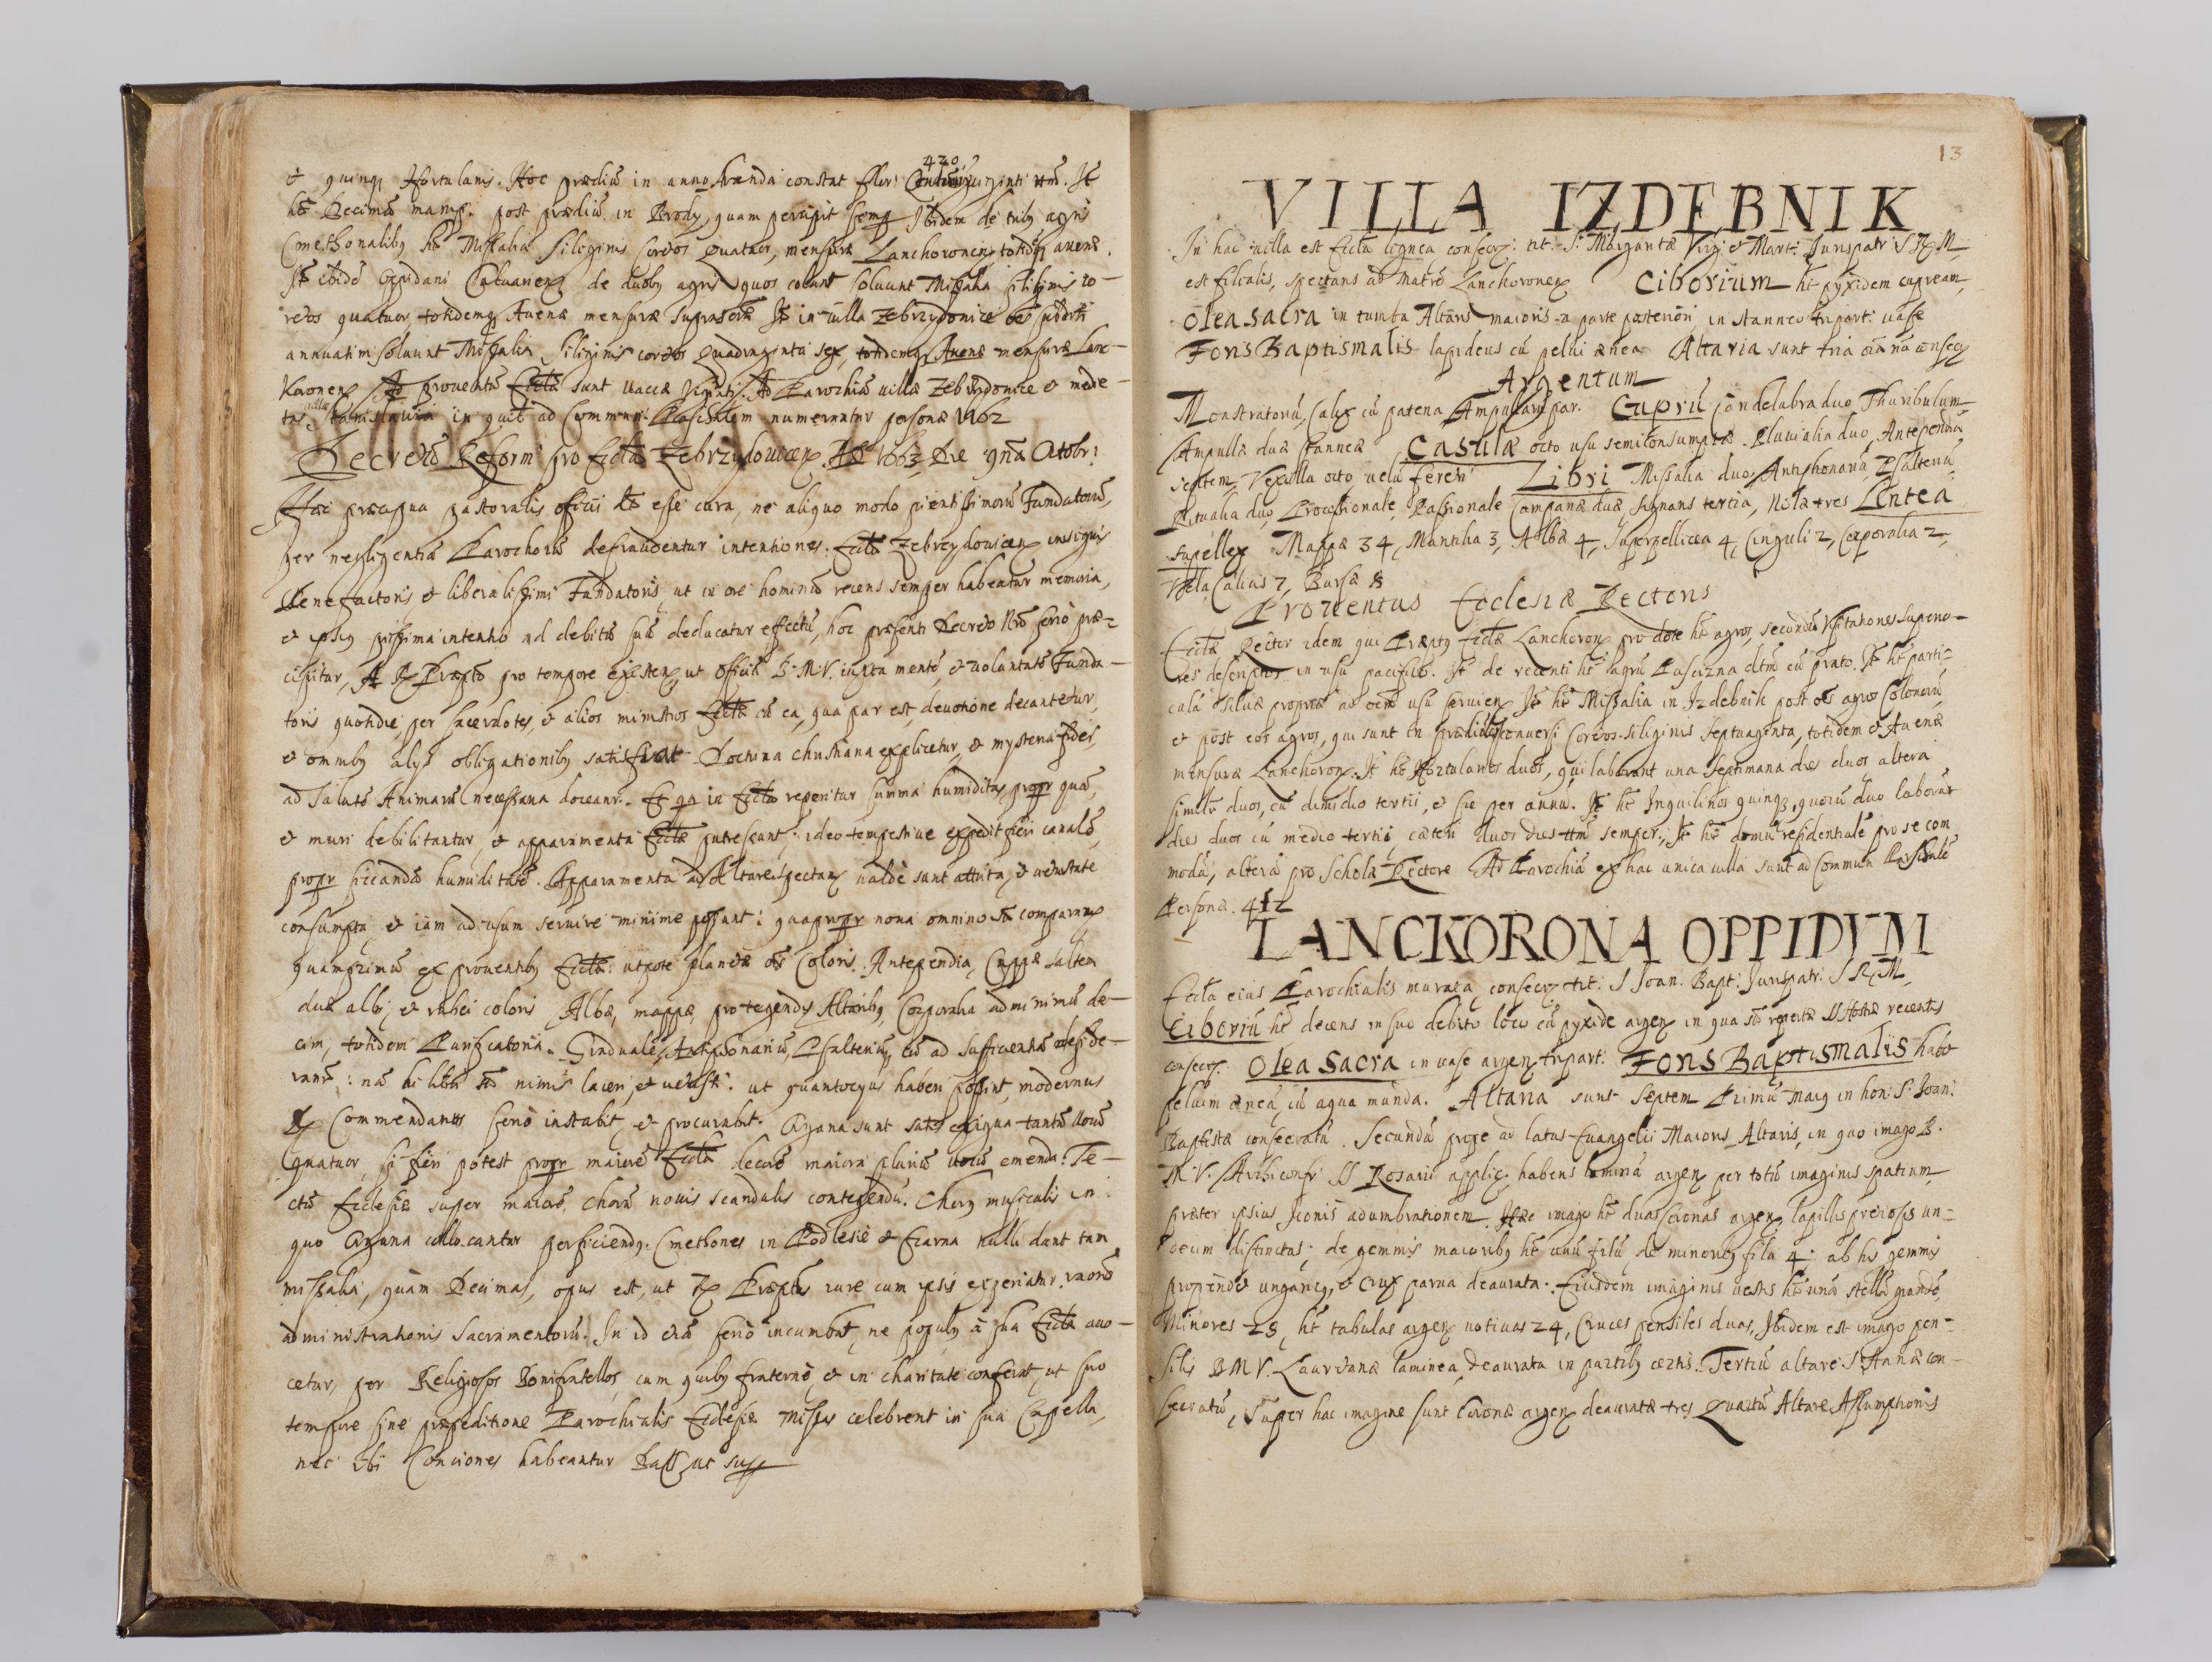 420
& quinq Hortulanis. Hoc prædiu in anno Arænda constat flor: viginti ttm. It
ht Decima manip. post prædiu in Brody, quam percipit semp Ibidem de trib agris
Cmethonalib ht Missalia Siliginis Coretos quatuor, mensuræ Lanchoronen, totidẽ avenæ.
It ibidẽ Oppidani Calvarien de duob agris quos colunt solvunt Missalia siliginis co-
retos quatuor, totidemq Avenæ mensuræ suprascrtæ It in villa Zebrzydovice oes subditi
annuatim solvunt Missalia Siliginis coretos Quadraginta sex, totidemq Avenæ mensuræ Lanc-
koronen Ad proventũ Ecclæ sunt vaccæ viginti. Ad Parochiã villæ Zebrzydovice & medie-
tas villæ in quit ad Commun: Paschalem numerantur personæ 1162
Decretũ Reform: pro Ecclã Zebrzydovicen AD 1663 Die 9na Octobr:
Hæc præcipua pastoralis officii dt esse cura, ne aliquo modo pientissimorũ Fundatorũ,
per negligentiã Parochorũ defraudentur intentiones. Ecclã Zebrzydovicen insignis
Benefactoris, & liberalissimi Fundatoris, ut in ore hominũ recens semper habeatur memoria,
& ipsius piissima intentio ad debitũ suũ deducatur effectũ, hoc præsenti Decreto Nro serio præ-
cipitur, A R Præpto pro tempore existen, ut officiũ B. M. V. iuxta mentẽ, & voluntatẽ Funda-
toris quotidie, per sacerdotes, & alios ministros Ecclæ cũ ea, qua par est, devotione decantetur,
& omnib alys obligationib satisfiat Doctrina christiana explicetur, & mysteria fidei,
ad Salutẽ Animarũ necessaria doceantr. Et qa in Ecclã reperitur summa humiditas, propr quã,
& muri debilitantur, & apparamenta Ecclæ putrescunt, ideo tempestive expedit fieri canalẽ,
propr siccandã humiditatẽ. Apparamenta ad Altare spectan valdè sunt attrita, & vetustate
consumpta, & iam ad usum servire minime possunt: quapropr nova omnino st comparan
quamprimũ ex proventib Ecclæ: utpote planetæ oĩs Coloris. Antependia, Cappæ saltem
duæ albi, & rubei coloris Albæ, mappæ, pro tegendis Altarib, Corporalia ad minimũ de-
cim, totidem Purificatoria. Graduale, Antiphonariũ, Psalteriũ, cũ ad sufficientiã deside-
rantr: nã hi libri st nimis laceri, & vetusti. ut quantocyus haberi possint, modernus
R Commendarius seriò instabit, & procurabit. Organa sunt satis exigua tantũ vocũ
quatuor, si fieri potest propr maiorẽ Ecclæ decorẽ maiora pluriũ vocũ emenda: Te-
ctũ Ecclesiæ super maiorẽ Chorũ novis scandulis contegendũ. Chorus musicalis in
quo Organa collocantur perficiendus. Cmethones in Podlesie & Czarna nulli dant tam
missalia, quam Decimas, opus est, ut R Præptus iure cum ipsis experiatur. ratione
administrationis sacramentorũ. In id etiã seriò incumbat, ne populus à sua Ecclã avo-
cetur, per Religiosos Bonifratellos, cum quib fraternè, & in charitate conferat, ut suo
tempore sine præpeditione Parochialis Ecclesiæ Missas celebrent in sua Cappella,
nec ibi Conciones habeantur Datt ut sup
13
VILLA IZDEBNIK
In hac villa est Ecclã lignea consecr: tit: S: Margaritæ Virg: & Mart: Jurispatr: S R M,
est filialis, spectans ad Matrẽ Lanchoronen Ciborium ht pyxidem cupream,
Olea sacra in tumba Altaris maioris à parte posteriori in stanneo tripart: vase
Fons Baptismalis lapideus cũ pelvi ænea Altaria sunt tria oĩa nõ consecr
Argentum
Monstratoriũ, Calix cũ patena Ampullarũ par. Cuprũ Candelabra duo, Thuribulum
Ampullæ duæ stanneæ Casulæ octo usu semiconsumptæ Pluvialia duo, Antependia
septem, Vexilla octo velũ feretri Libri Missalia duo, Antiphonariũ, Psalteriũ
Ritualia duo, Processionale, Passionale Campanæ duæ, signans tertia, Nolæ tres Lintea
supellex Mappæ 34, Mantilia 3, Albæ 4, Superpellicea 4, Cinguli 2, Corporalia 2,
Vela Calicis 7, Bursæ 8
Proventus Ecclesiæ Rectoris
Ecclæ Rector idem qui Præptus Ecclæ Lanchoron pro dote ht agros, secundũ Visitationes superio-
res descriptos in usu pacifico. It de recenti ht agrũ Puscizna dctm cũ prato. It ht parti-
culã silvæ propriæ ad oem usũ servien It ht Missalia in Izdebnik post oes agros Colonorũ
& post eos agros, qui sunt in prædiũ conversi Coretos siliginis Septuaginta, totidem & Avenæ
mensuræ Lanchoron. It ht Hortulanos duos, qui laborant una septimana dies duos altera
similr duos, cũ dimidio tertii, & sic per annũ. It ht Inquilinos quinq, quorũ duo laborant
dies duos cũ medio tertii, cæteri duos dies ttm semper. It ht domũ residentialẽ pro se com
modã, alterã pro Scholæ Rectore Ad Parochiã ex hac unica villa sunt ad Commun Paschalẽ
Personæ. 412
LANCKORONA OPPIDVM
Ecclã eius Parochialis murata consecr tit: S Joan: Bapt: Jurispatr: S R M
Ciboriũ ht decens in suo debito loco cũ pyxide argen in qua st repertæ SS Hostiæ recentes
consecr. Olea sacra in vase argen tripart: Fons Baptismalis habet
pelvim æneã, cũ aqua munda. Altaria sunt Septem Primũ maius in hon: S: Joan:
Baptistæ consecratũ. Secundũ prope ad latus Evangelii Maioris Altaris, in quo imago B.
M. V. Archiconfr SS Rosarii applic: habens laminã argen per totũ imaginis spatium,
præter ipsius Iconis adumbrationem. Hæc imago ht duas Coronas argen lapillis preciosis un-
decim distinctas; de gemmis maiorib ht unũ filũ, de minorib fila 4: ab his gemmis
propendet ungaricus, & crux parva deaurata. Eiusdem imaginis vestis ht unã stellã grandẽ,
Minores 28, ht tabulas argen votivas 24, Cruces pensiles duas, Ibidem est imago pen-
silis B M V. Lauretanæ laminea, deaurata in partib certis. Tertiũ altare S Annæ con-
secratũ, super hac imagine sunt Coronæ argen deauratæ tres Quartũ Altare Assumptionis